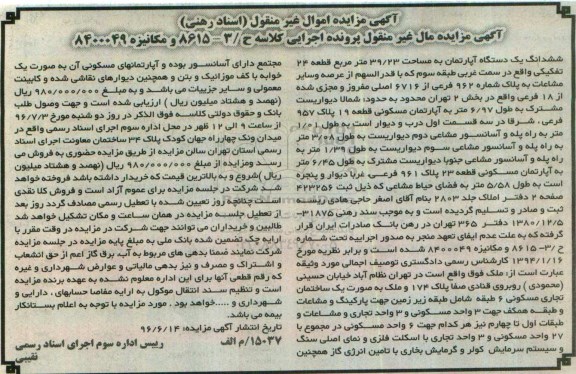 آگهی مزایده اموال غیر منقول (اسناد رهنی)
آگهی مزایده مال غیر منقول پرونده اجرایی کلاسه ح /۳ - ۸۶۱۵ و مکانیزه ۸۴۰۰۰۴۹
ششدانگ یک دستگاه آپارتمان به مساحت ۳۹/۲۳ متر مربع قطعه ۲۴
تفکیکی واقع در سمت غربی طبقه سوم که با قدرالسهم از عرصه وسایر
مشاعات به پلاک شماره ۹۶۲ فرعی از ۶۷۱۶ اصلی مفروز و مجزی شده
از ۱۸ فرعی واقع در بخش ۲ تهران محدود به حدود: شمالا دیواریست
مشترک به طول ۶/۹۷ متر به آپارتمان مسکونی قطعه ۱۹ پلاک ۹۵۷
فرعی ، شرقا در سه قسمت اول درب و دیوار است به طول ۱/۰۱
متر به راه پله و آسانسور مشاعی دوم دیواریست به طول ۳/۰۸ متر
به راه پله و آسانسور مشاعی سوم دیواریست به طول ۱/۳۹ متر به
راه پله و آسانسور مشاعی جنوبا دیواریست مشترک به طول ۶/۴۵ متر
به آپارتمان مسکونی قطعه ۲۳ پلاک ۹۶۱ فرعی، غربا دیوار و پنجره
است به طول ۵/۵۸ متر به فضای حیاط مشاعی که ذیل ثبت ۴۲۳۲۵۶
صفحه ۲ دفتر املاک جلد ۲۸۰۳ بنام آقای اصغر حاجی هادی ریسه
ثبت و صادر و تسلیم گردیده است و به موجب سند رهنی ۳۱۸۷۵-
۱۳۸۰/۱۲/۵ دفتر ۳۶۵ تهران در رهن بانک صادرات ایران قرار
گرفته که به علت عدم ایفای تعهد منجر به صدور اجراییه تحت شماره
ح /۳- ۸۶۱۵ و مکانیزه ۸۴۰۰۰۴۹ شده است و برابر نظریه مورخ
۱۳۹۴/۱۱/۱۶ کارشناس رسمی دادگستری توصیف اجمالی مورد وثیقه
عبارت است از: ملک فوق واقع است در تهران نظام آباد خیابان حسینی
(محمودی ) روبروی قنادی صفا پلاک ۱۷۴ و ملک به صورت یک ساختمان
تجاری مسکونی ۶ طبقه شامل طبقه زیر زمین جهت پارکینگ و مشاعات
و طبقه همکف جهت ۳ واحد مسکونی و ۳ واحد تجاری و مشاعات و
طبقات اول تا چهارم نیز هر کدام جهت ۶ واحد مسکونی در مجموع با
۲۷ واحد مسکونی و ۳ واحد تجاری با اسکلت فلزی و نمای اصلی سنگ
و سیستم سرمایش کولر و گرمایش بخاری با تامین انرژی گاز همچنین
مجتمع دارای آسانسور بوده و آپارتمانهای مسکونی آن به صورت یک
خوابه با کف موزائیک و بتن و همچنین دیوارهای نقاشی شده و کابینت
معمولی و سایر جزییات می باشد و به مبلغ ۹۸۰/۰۰۰/۰۰۰ ریال
(نهصد و هشتاد میلیون ریال ) ارزیابی شده است و جهت وصول طلب
بانک و حقوق دولتی کلاسه فوق الذکر در روز دو شنبه مورخ ۹۶/۷/۳
از ساعت ۹ الی ۱۲ ظهر در محل اداره سوم اجرای اسناد رسمی واقع در
میدان ونک چهارراه جهان کودک پلاک ۳۴ ساختمان معاونت اجرای اسناد
رسمی استان تهران سالن مزایده از طریق مزایده حضوری به فروش می
رسد ومزایده از مبلغ ۹۸۰/۰۰۰/۰۰۰ ریال (نهصد و هشتاد میلیون
ریال )شروع و به بالاترین قیمت که خریدار داشته باشد فروخته خواهد
شد شرکت در جلسه مزایده برای عموم آزاد است و فروش کلا نقدی
است چنانچه روز تعیین شده با تعطیل رسمی مصادف گردد روز بعد
از تعطیل جلسه مزایده در همان ساعت و مکان تشکیل خواهد شد
طالبین و خریداران می توانند جهت شرکت در مزایده در وقت مقرر با
ارایه چک تضمین شده بانک ملی به مبلغ پایه مزایده در جلسه مزایده
شرکت نمایند ضمنا بدهی های مربوط به آب، برق گاز اعم از حق انشعاب
و اشتراک و مصرف و نیز بدهی مالیاتی و عوارض شهرداری و غیره
که رقم قطعی آنها برای این اداره معلوم نشده به عهده برنده مزایده
است و تنظیم سند انتقال موکول به ارایه مفاصا حسابهای ، دارایی و
شهرداری و .....خواهد بود . مورد مزایده با توجه به اعلام بستانکار
بیمه می باشد.
تاریخ انتشار آگهی مزایده: ۹۶/۶/۱۴
۱۵۰۳۷/م الف رییس اداره سوم اجرای اسناد رسمی
نقیبی